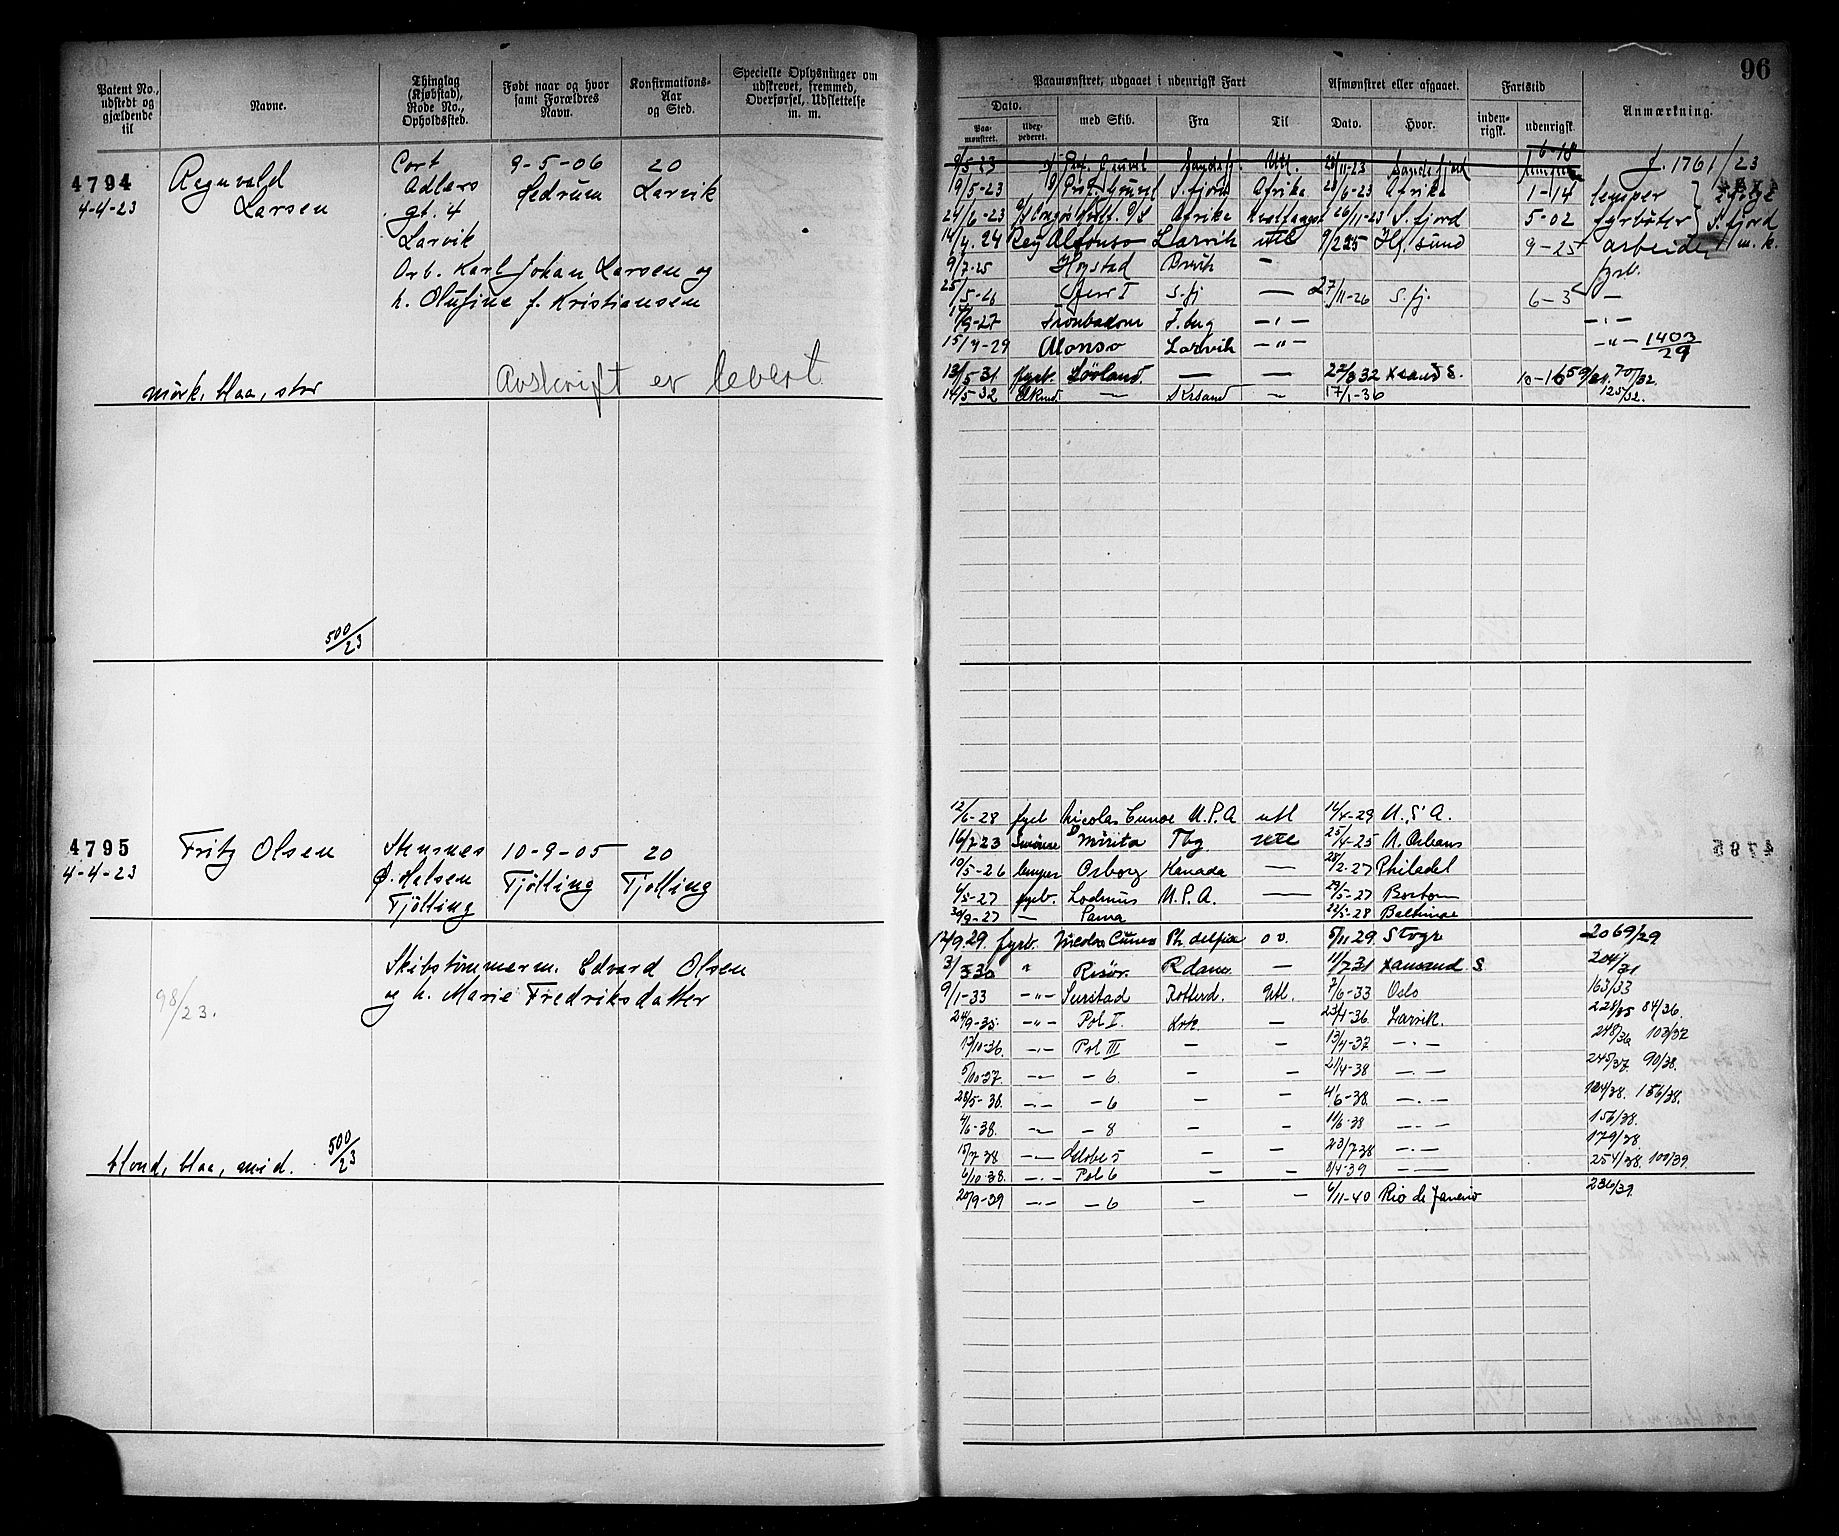 96
Patent No., udstedt og gjældende til
Navne.
Thinglag (Kjøbstad), Rode No., Opholdssted.
Født naar og hvor samt Forældres Navn.
Konfirmations-Aar og Sted.
Specielle Oplysninger om udskrevet, fremmed, Overførsel, Udslettelse m. m.
Paamønstret, udgaaet i udenrigsk Fart
Afmønstret eller afgaaet.
Fartstid
Anmærkning.
Dato.
Paa-mønstret.
med Skib.
Fra
Til
Dato.
Hvor.
inden-rigsk.
udenrigsk.
4794
4-4-23
Regnvald Larsen
Cort Adlers gt. 4 Larvik
9-5-06 Hedrum
20 Larvik
Orb. Karl Johan Larsen og
h. Olufine f. Kristiansen
mørk, blaa, stor
Avskrift er levert
500/23
6-18
J. 1761/23
19/5-23 S.fjord Afrika 28/6-23 Afrika 1-14 lemper
24/6-23 Afrika 26/11-23 S.fjord 5-02 fyrbøter S.fjord
14/4.24 Rey Alfonso Larvik utl 9-25 arbeide
9/7-25 Hogstad Brevik — fyrb.
25/5-26 S.fj — 27/11-26 S.fj. 6-3 —
Trombadour T.berg —"— —"—
15/4-29 Alonso Larvik —"— —"— 1403/29
13/5 31 fyrb. Sørland — — Xsand S. 10-16 70/32.
14/5-32 — Krsand — 17/1-36 125/32.
4795
4-4-23
Fritz Olsen
Ø. Halsen Tjølling
10-9-05 Tjølling
20 Tjølling
Skibstømmerm. Edvard Olsen
og h. Marie Fredriksdatter
98/23.
blond, blaa, mid.
500/23
12/6-28 fyrb Nicolas Cuneo U.S.A utl 14/4-29 U.S.A.
16/7 23 Mirita Tbg utl 25/4-25 N. Orleans
10/5-26 lemper Osborg Kanada — 28/2-27 Philadel
6/5-27 fyrb. U.S.A. — 29/5-27 Boston
30/9-27 — Pama 22/5-28 Baltimore
12/9.29. fyrb. Nicolas Cuneo Ph.delfia 5/11 29. 2069/29
Risør Rdam — 11/7 31 Xansand S. 204/31
9/1-33 —"— Surstad Rotterd. Utl. 7/6-33 Oslo 163/33
24/9-35 —"— Pol I. Lrk — 23/4-36. Larvik. 228/35 84/36.
13/10-36. —"— Pol III — — 13/4-37 —"— 248/36 103/37
5/10-37. —"— — 6. — — 21/4-38 —"— 245/37. 90/38.
28/5-38. —"— — 6 — — 4/6-38. —"— 124/38. 156/38.
4/6-38. —"— — 8 — — 11/6-38 —"— 156/38.
15/7-38 —"— Globe 5 — — 23/7-38 —"— 179/38
6/10-38. —"— Pol 6 — — 8/4-39 —"— 254/38. 109/39.
20/9-39 —"— — 6 — — 6/11-40 Rio de Janeiro 236/39.